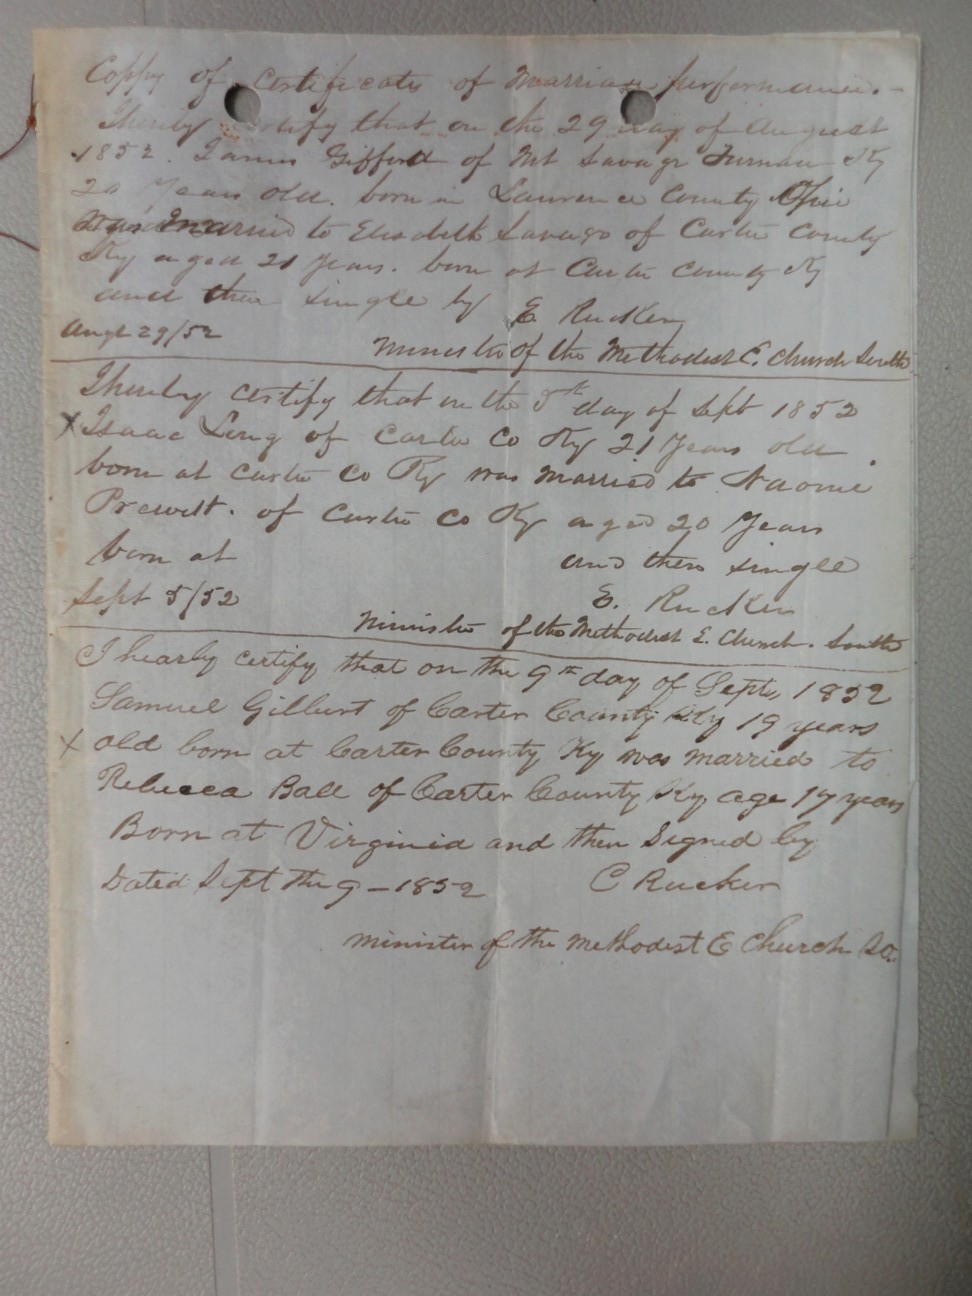 Coppy of Certificate of Marriage performance.
I hereby certify that on the 29 day of August
1852. James Gifford of Mt Savage Furnace Ky
20 Years old. born in Lawrence County Ohio
was married to Elisabeth Savage of Carter County
Ky aged 21 Years. born at Carter County Ky
and then single by E. Rucker
Augt 29/52
Minister of the Methodist E. Church South
I hereby certify that on the 5th day of Sept 1852
x Isaac Long of Carter Co Ky 21 Years old
born at Carter Co Ky was married to Naomi
Prewitt. of Carter Co Ky aged 20 Years
born at and then single
Sept 5/52 E. Rucker
Minister of the Methodist E. Church. South
I hearby certify that on the 9th day of Sept, 1852
Samuel Gilbert of Carter County Ky 19 years
x old born at Carter County Ky was married to
Rebecca Ball of Carter County Ky age 17 years
Born at Virginia and then Signed by
Dated Sept the 9 - 1852 C Rucker
minister of the Methodist E Church So.